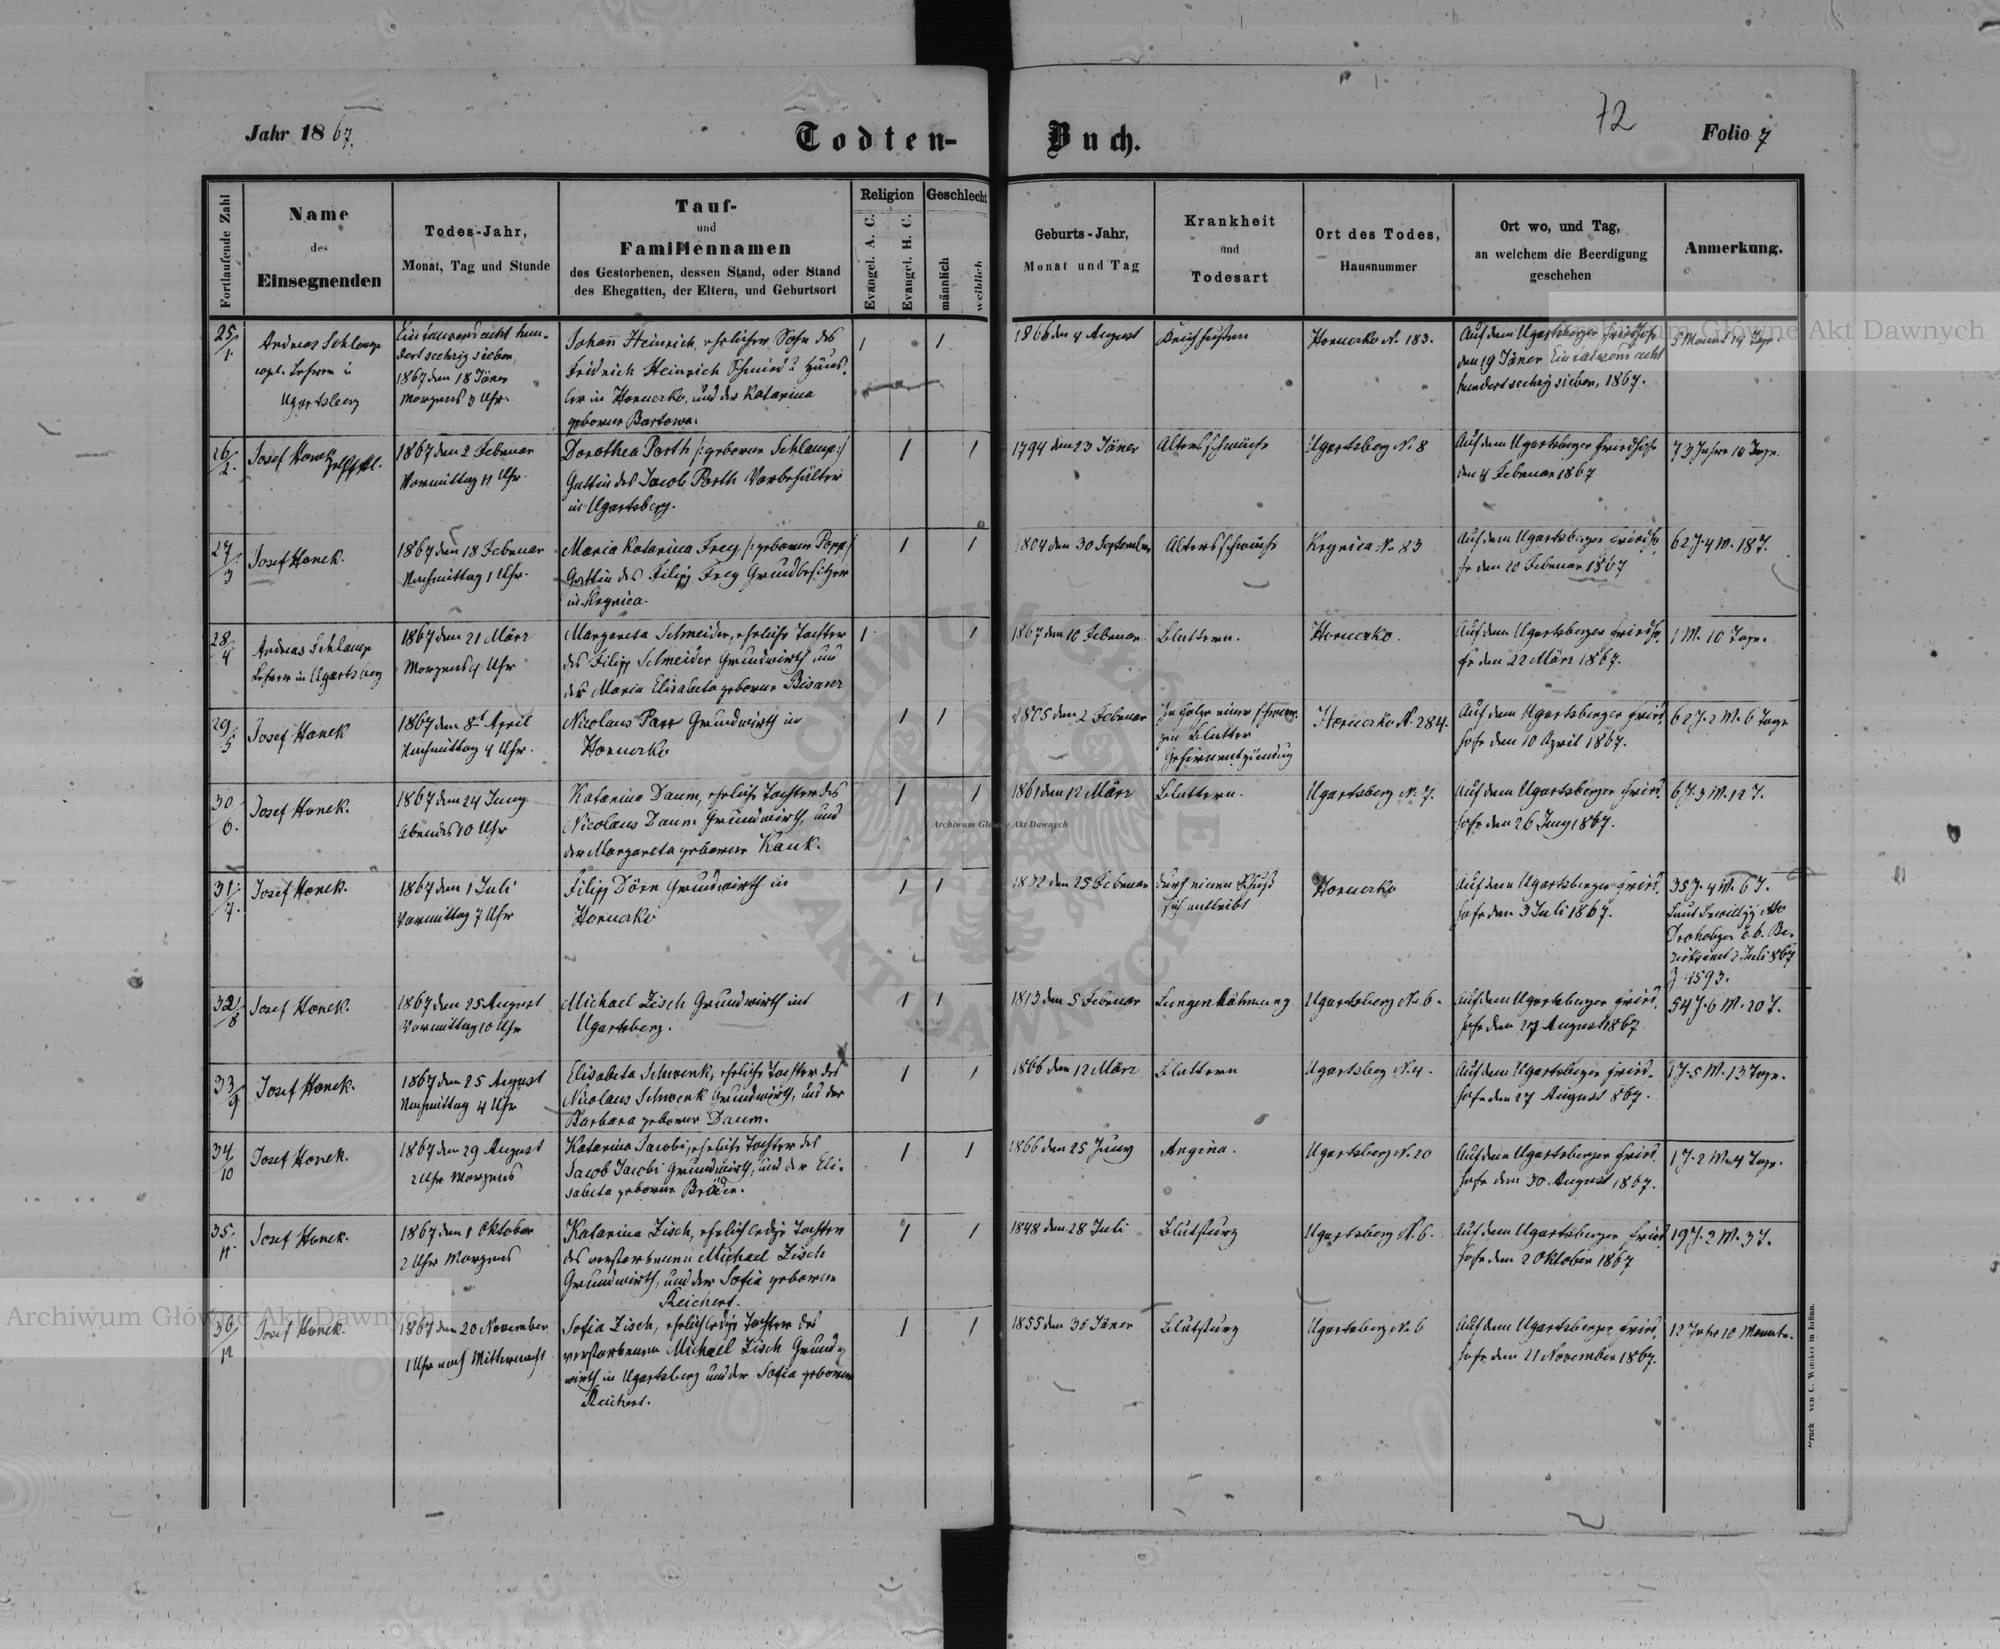 Jahr 1867.
Todten-Buch.
72
Folio 7
Fortlaufende Zahl
Name
des
Einsegnenden
Todes-Jahr,
Monat, Tag und Stunde
Tauf-
und
Familiennamen
des Gestorbenen, dessen Stand, oder Stand
des Ehegatten, der Eltern, und Geburtsort
Religion
Evangel. A. C.
Evangel. H. C.
Geschlecht
männlich
weiblich
Geburts-Jahr,
Monat und Tag
Krankheit
und
Todesart
Ort des Todes,
Hausnummer
Ort wo, und Tag,
an welchem die Beerdigung
geschehen
Anmerkung.
25/1.
Andreas Schlamp
Lehrer in
Ugartsberg
Eintausend acht hun-
dert sechzig sieben,
1867 den 18 Jäner
Morgens 3 Uhr.
Johann Heinrich, ehelicher Sohn des
Fridrich Heinrich Schmied u Häus-
ler in Horucko, und der Katarina
geborne Bartowa.
1
1
1866 den 4 August
Keichhusten
Horucko No 183.
Auf dem Ugartsberger Friedhofe
den 19 Jäner Eintausend acht
hundert sechzig sieben, 1867.
5 Monat 14 Tage.
26/2.
Josef Hanek
1867 den 2 Februar
Vormittag 11 Uhr.
Dorothea Porth /: geborne Schlamp :/
Gattin des Jacob Porth Vorbehälter
in Ugartsberg.
1
1
1794 den 23 Jäner
Altersschwäche
Ugartsberg No 8
Auf dem Ugartsberger Friedhofe
den 4 Februar 1867
73 Jahre 10 Tage.
27/3
Josef Hanek.
1867 den 18 Februar
Nachmittag 1 Uhr.
Maria Katarina Frey /: geborne Popp /
Gattin des Filipp Frey Grundbesitzer
in Krynica.
1
1
1804 den 30 September
Altersschwäche
Krynica No 83
Auf dem Ugartsberger Friedho-
fe den 20 Februar 1867
62 J. 4 M. 18 T.
28/4
Andreas Schlamp
Lehrer in Ugartsberg
1867 den 21 März
Morgens 4 Uhr
Margareta Schneider, eheliche Tochter
des Filipp Schneider Grundwirth und
der Maria Elisabeta geborne Bisanz
1.
1
1867 den 10 Februar
Blattern.
Horucko.
Auf dem Ugartsberger Friedho-
fe den 22 März 1867.
1 M. 10 Tage.
29/5
Josef Hanek
1867 den 8t April
Nachmittag 4 Uhr.
Nicolaus Parr Grundwirth in
Horucko
1
1
1805 den 2 Februar
In Folge einer
Blatter
Gehirnentzündung
Horucko No 284.
Auf dem Ugartsberger Fried-
hofe den 10 April 1867.
62 J. 2 M. 6 Tage
30/6.
Josef Hanek.
1867 den 24 Juny
Abends 10 Uhr
Katarina Daum, eheliche Tochter des
Nicolaus Daum Grundwirth, und
der Margareta geborne Kauk.
1
1
1861 den 12 März
Blattern.
Ugartsberg No 7.
Auf dem Ugartsberger Fried-
hofe den 26 Juny 1867.
6 J. 3 M. 12 T.
31/7.
Josef Hanek.
1867 den 1 Juli
Vormittag 7 Uhr
Filipp Dörr Grundwirth in
Horucko
1
1
1832 den 25 Februar
durch einen Schuß
sich entleibt
Horucko
Auf dem Ugartsberger Fried-
hofe den 3 Juli 1867.
35 J. 4 M. 6 T.
Laut
k. k. Be-
zirksamt 2 Juli 867
Z 4593.
32/8
Josef Hanek.
1867 den 25 August
Vormittag 10 Uhr
Michael Zisch Grundwirth in
Ugartsberg.
1
1
1813 den 5 Februar
Lungenlähmung
Ugartsberg No 6.
Auf dem Ugartsberger Fried-
hofe den 27 August 1867
54 J. 6 M. 20 T.
33/9
Josef Hanek.
1867 den 25 August
Nachmittag 4 Uhr
Elisabeta Schwenk, eheliche Tochter des
Nicolaus Schwenk Grundwirth, und der
Barbara geborne Daum.
1
1
1866 den 12 März
Blattern
Ugartsberg No 4.
Auf dem Ugartsberger Fried-
hofe den 27 August 867.
1 J. 5 M. 13 Tage.
34/10
Josef Hanek.
1867 den 29 August
2 Uhr Morgens
Katarina Jacobi, eheliche Tochter des
Jacob Jacobi Grundwirth, und der Eli-
sabeta geborne Bräder.
1
1
1866 den 25 Juny
Angina.
Ugartsberg No 20
Auf dem Ugartsberger Fried-
hofe den 30 August 1867.
1 J. 2 M. 4 Tage.
35/11.
Josef Hanek.
1867 den 1 Oktober
2 Uhr Morgens
Katarina Zisch, ehelich ledige Tochter
des verstorbenen Michael Zisch
Grundwirth, und der Sofia geborne
Reichert.
1
1
1848 den 28 Juli
Blutsturz
Ugartsberg No 6.
Auf dem Ugartsberger Fried-
hofe den 2 Oktober 1867
19 J. 2 M. 3 T.
36/12
Josef Hanek.
1867 den 20 November
1 Uhr nach Mitternacht
Sofia Zisch, ehelich ledige Tochter des
verstorbenen Michael Zisch Grund-
wirth in Ugartsberg und der Sofia geborene
Reichert.
1
1
1855 den 30 Jäner
Blutsturz
Ugartsberg No 6
Auf dem Ugartsberger Fried-
hofe den 21 November 1867.
12 Jahre 10 Monate.
Archiwum Główne Akt Dawnych
Archiwum Główne Akt Dawnych
Archiwum Główne Akt Dawnych
ARCHIWUM GŁÓWNE AKT DAWNYCH